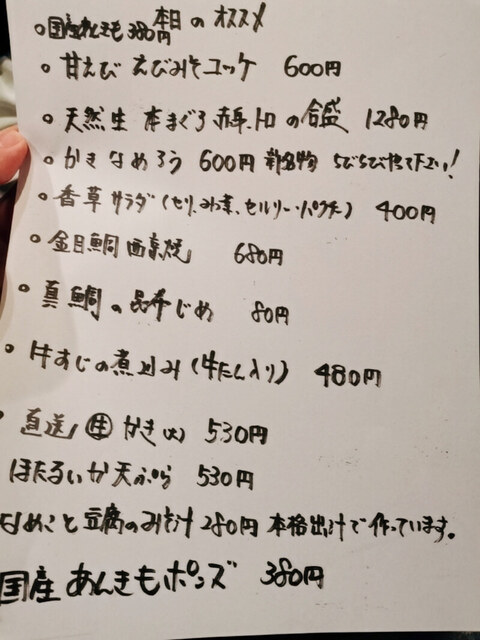 本日のオススメ
○国産あんきも380円
○甘えび えびみそユッケ 600円
○天然生 本まぐろ 赤身、トロの合盛 1280円
○かきなめろう 600円 新名物 ちびちびやって下さい!
○香草サラダ(セリ、みつ菜、セルリー、パクチー) 400円
○金目鯛 西京焼 680円
○真鯛の昆布じめ 80円
○牛すじの煮込み(牛たん入り) 480円
○直送 生 かき(大) 530円
ほたるいか天ぷら 530円
なめこと豆腐のみそ汁 280円 本格出汁で作っています。
国産あんきもポンズ 380円